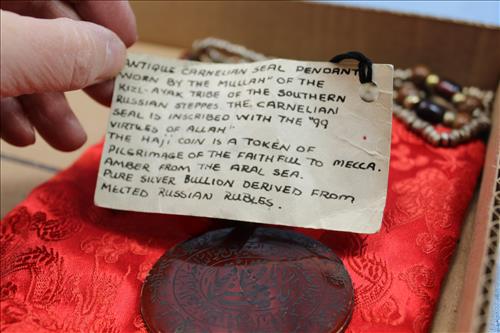 ANTIQUE CARNELIAN SEAL PENDANT
WORN BY THE MULLAH" OF THE
KIZL-AYAK TRIBE OF THE SOUTHERN
RUSSIAN STEPPES. THE CARNELIAN
SEAL IS INSCRIBED WITH THE "99
VIRTUES OF ALLAH"
THE HAJI COIN IS A TOKEN OF
PILGRIMAGE OF THE FAITHFUL TO MECCA.
AMBER FROM THE ARAL SEA.
PURE SILVER BULLION DERIVED FROM
MELTED RUSSIAN RUBLES.